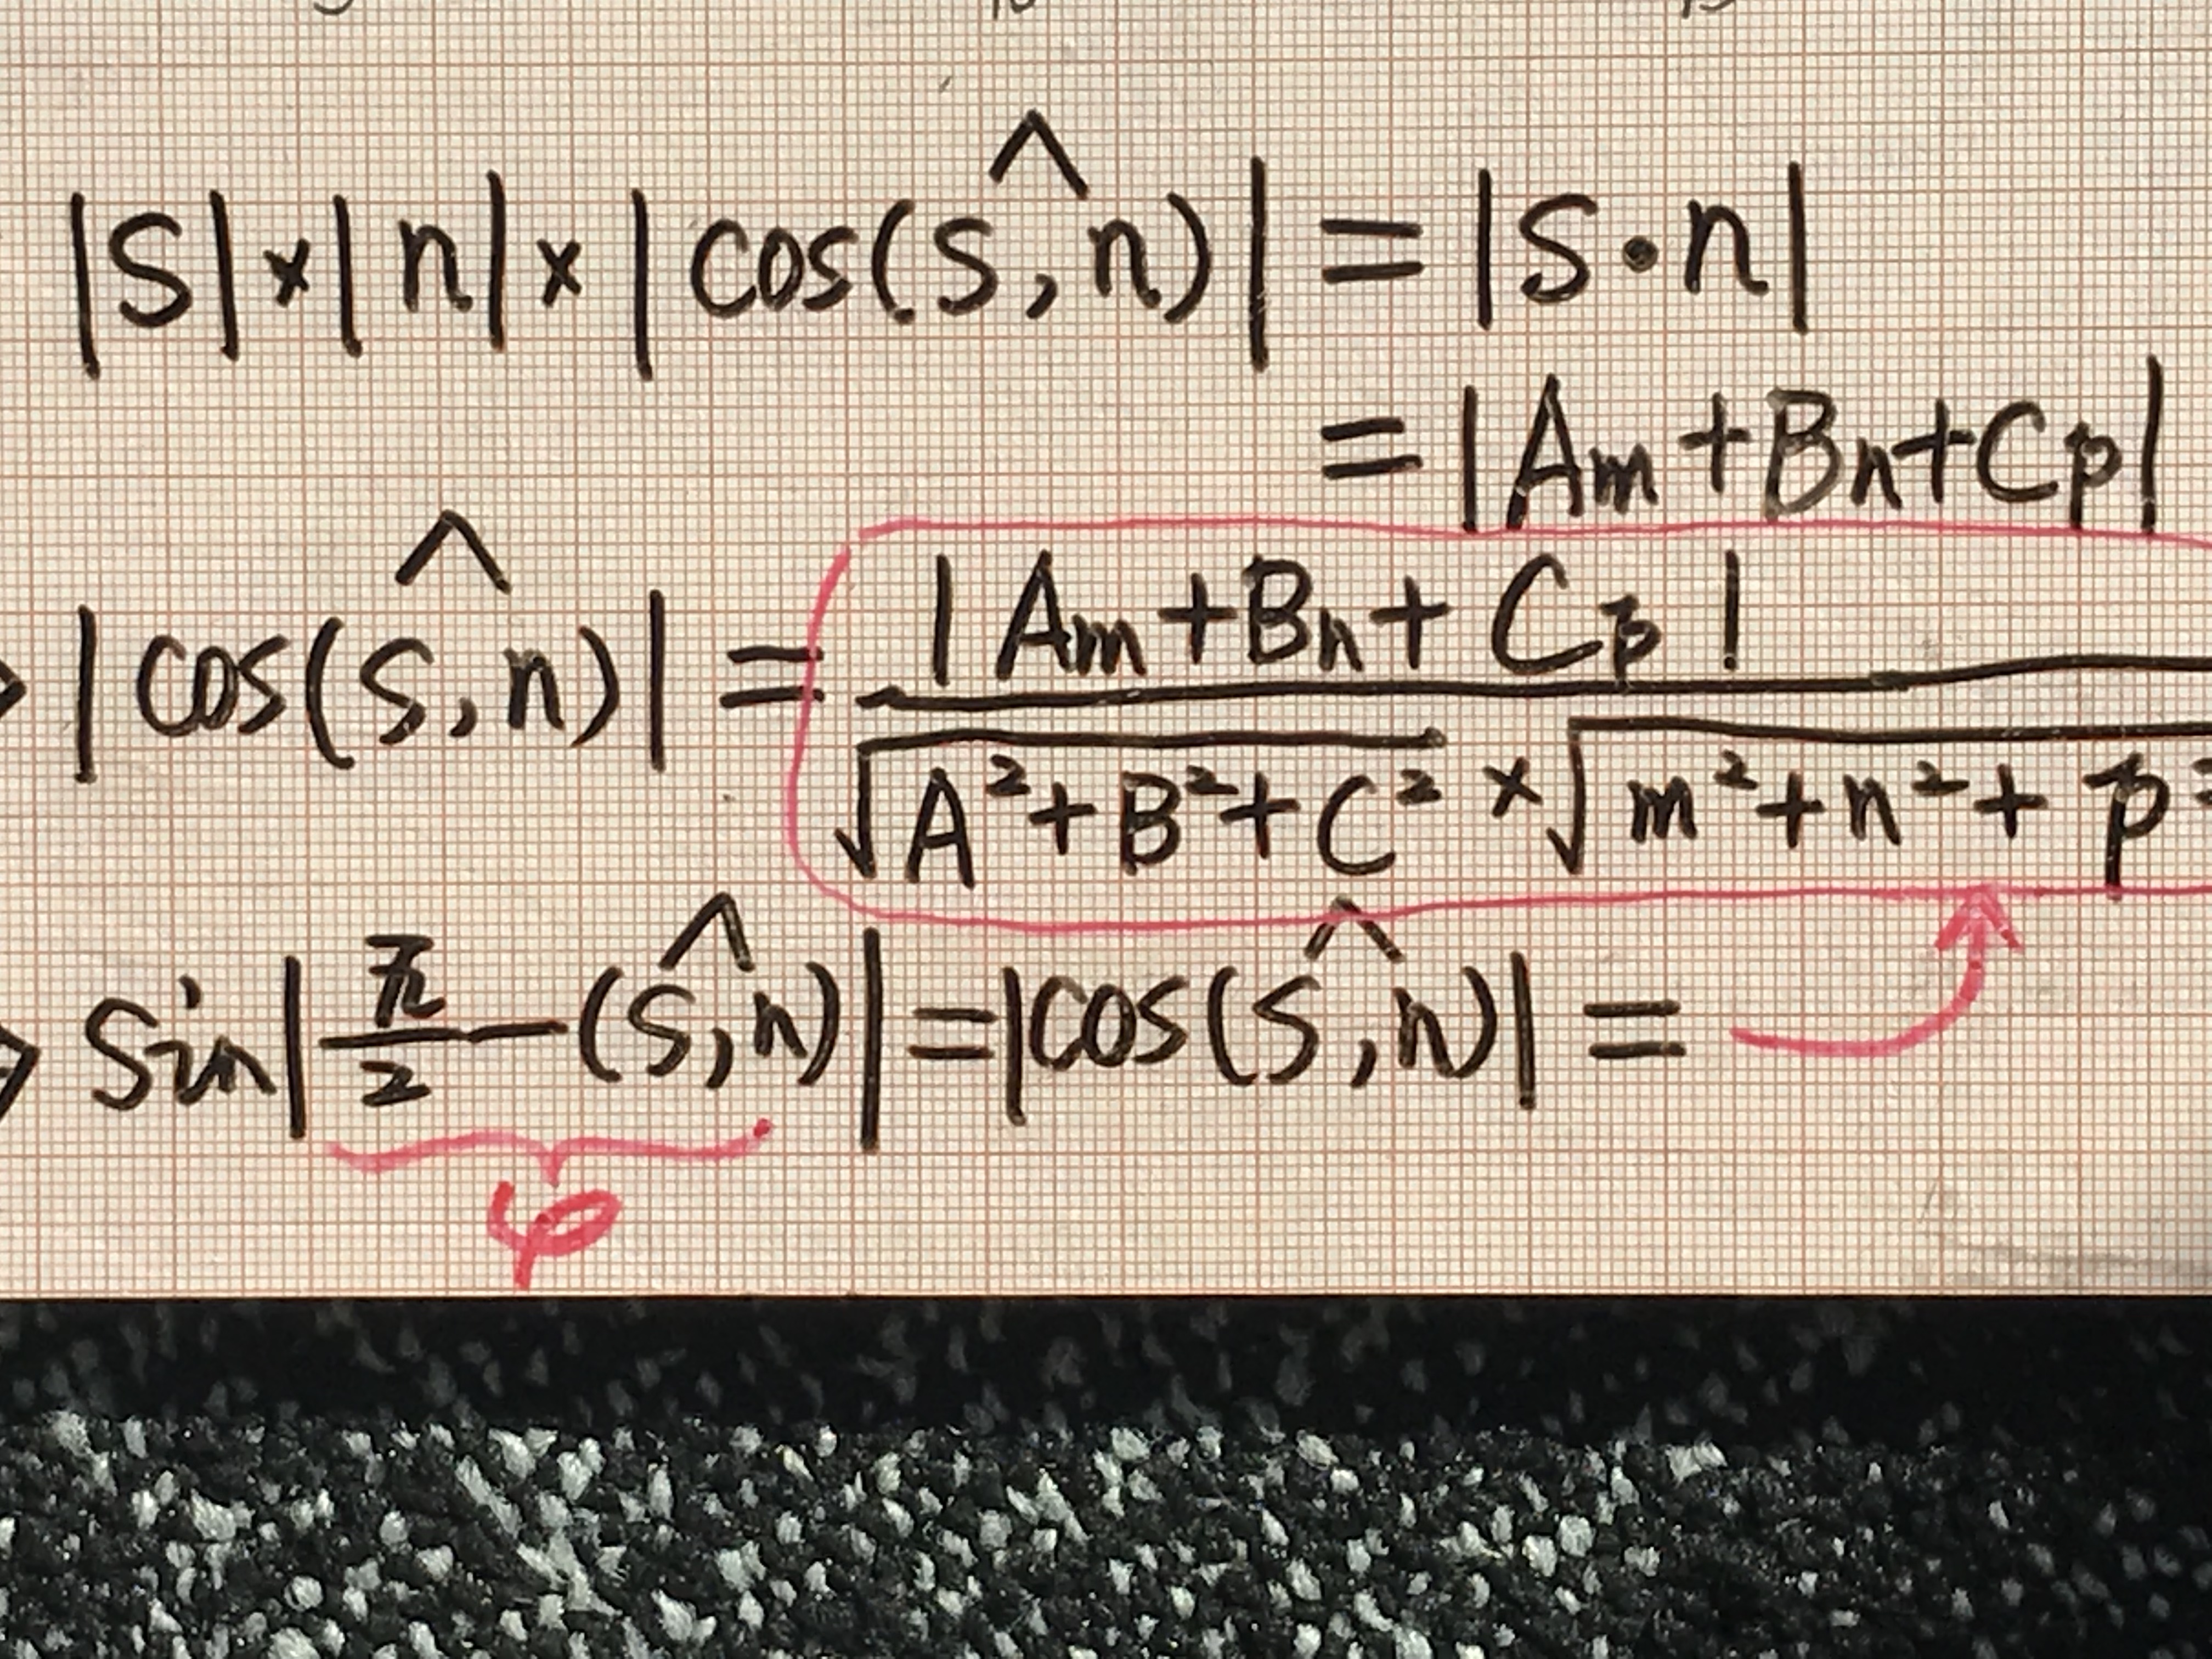 |S|×|n|×|cos(S^,n)| = |S·n|
= |Am+Bn+Cp|
|cos(S^,n)| = |Am+Bn+Cp| / √(A²+B²+C²) × √(m²+n²+p²
sin|π/2 − (S^,n)| = |cos(S^,n)| =
φ